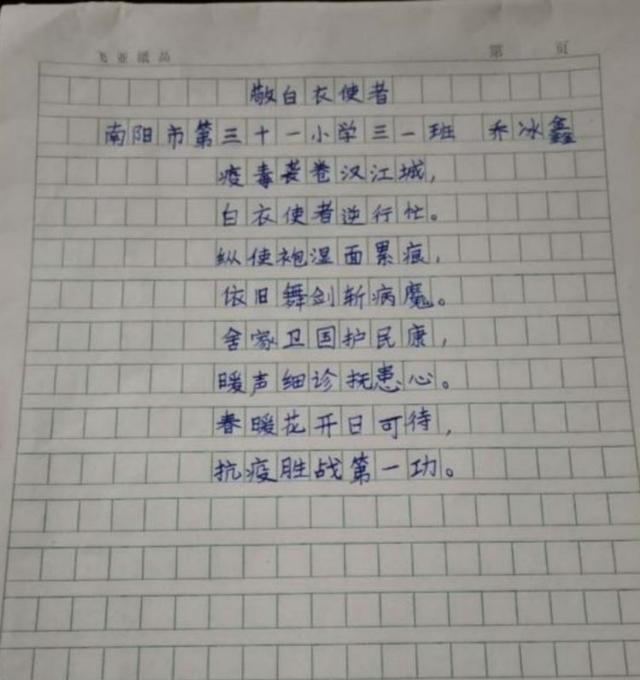 飞亚纸品 第 页
敬白衣使者
南阳市第三十一小学三一班 乔冰鑫
疫毒袭卷汉江城，
白衣使者逆行忙。
纵使袍湿面累痕，
依旧舞剑斩病魔。
舍家卫国护民康，
暖声细诊抚患心。
春暖花开日可待，
抗疫胜战第一功。